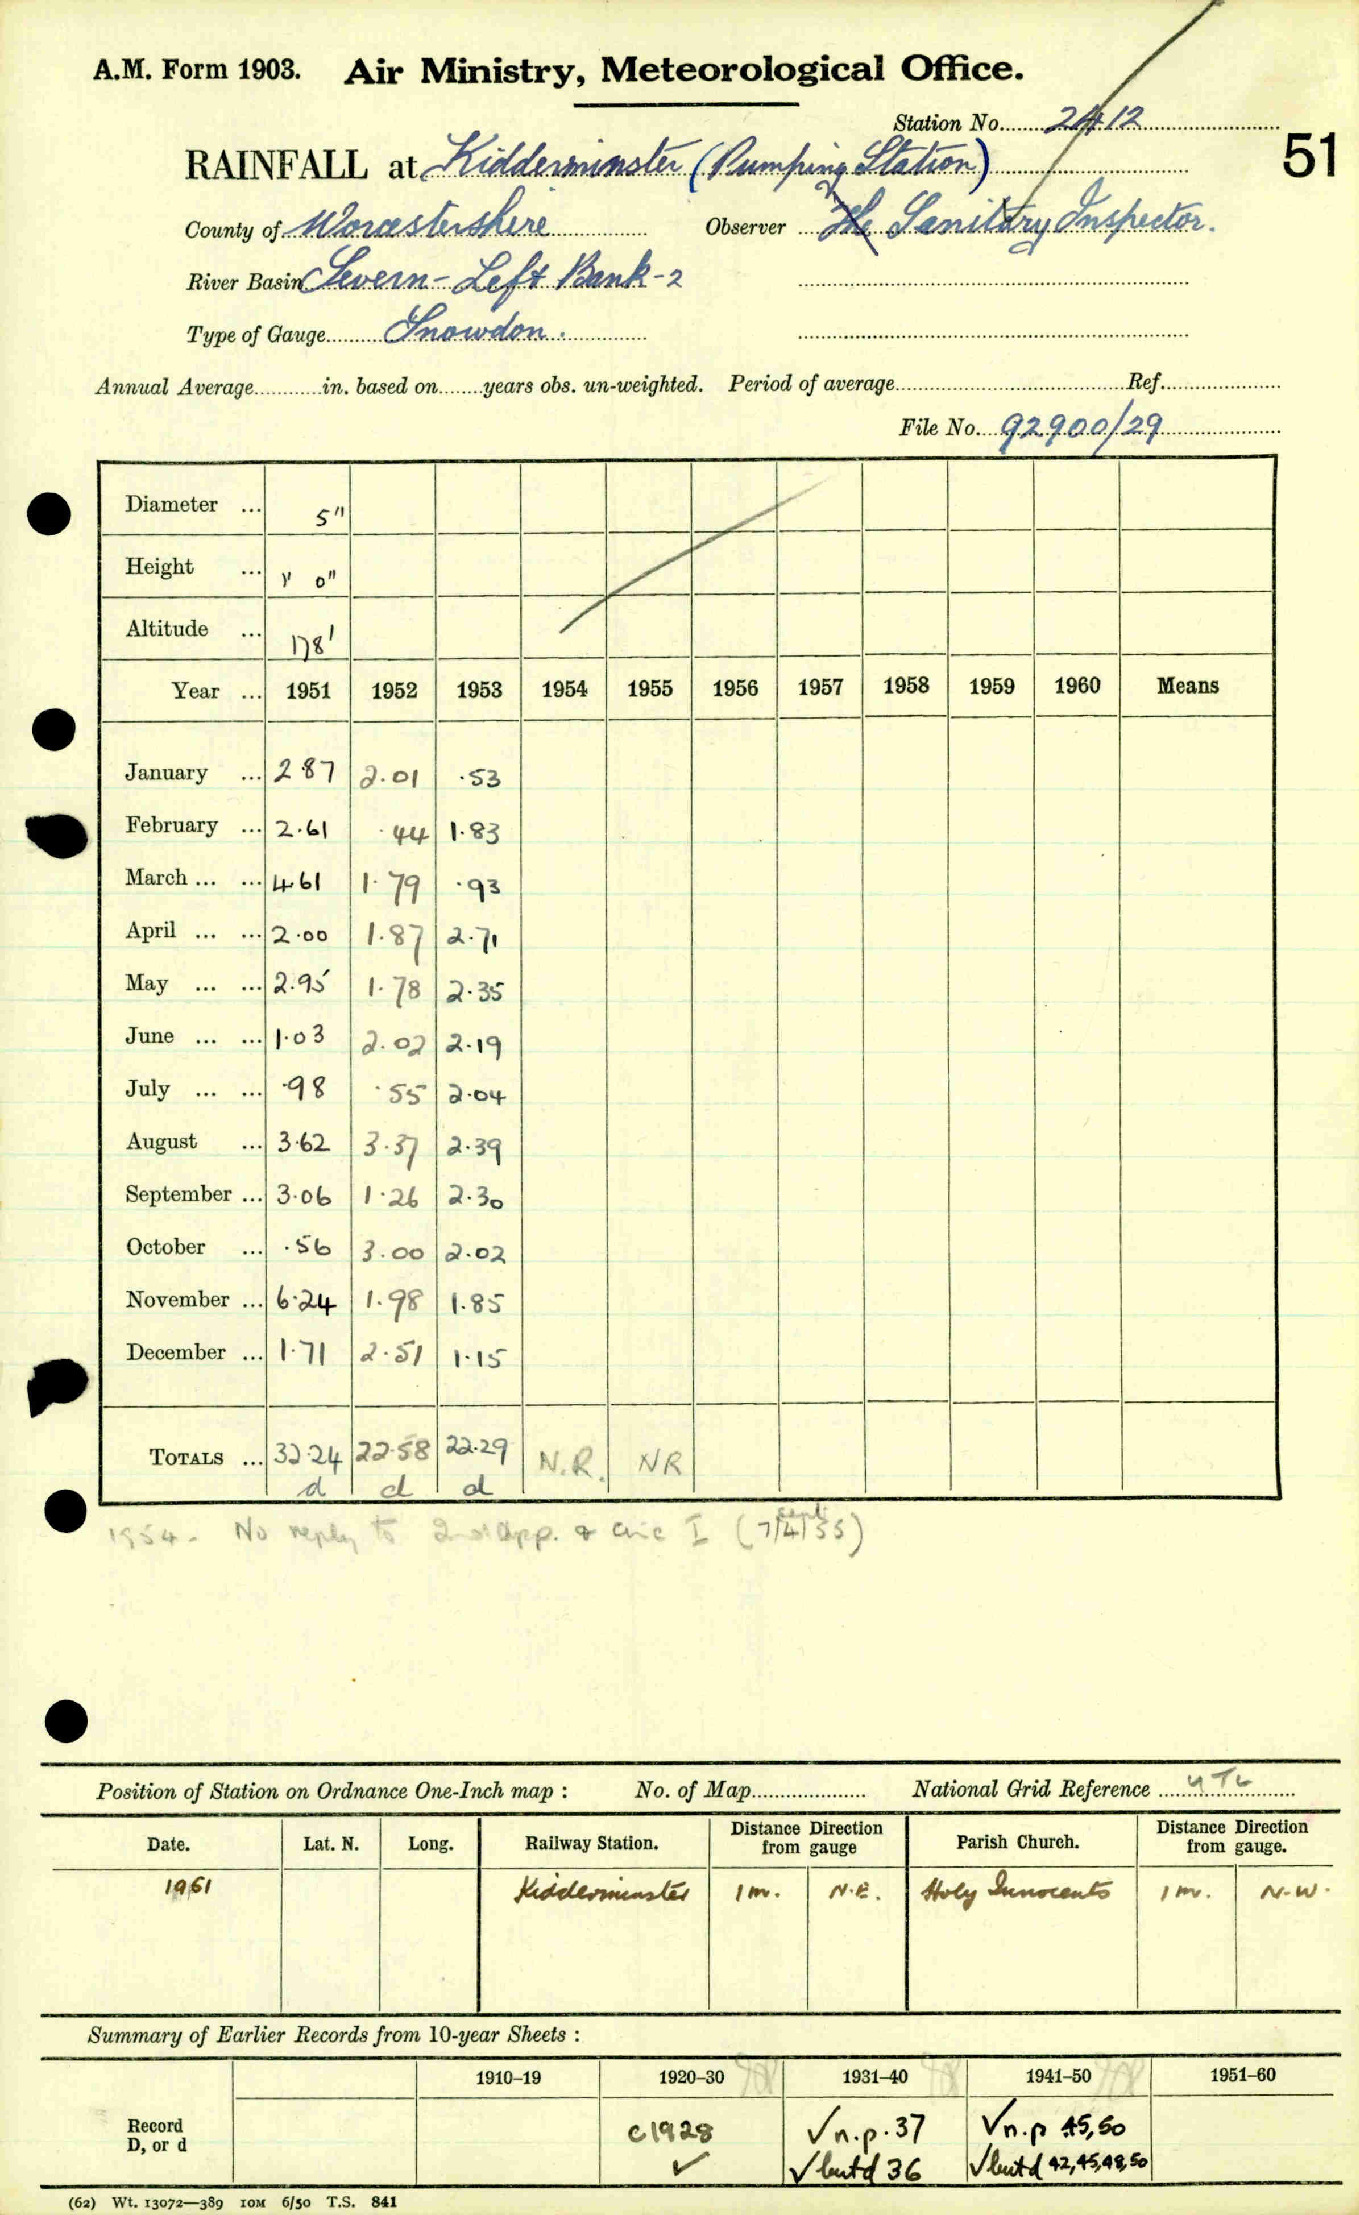 A.M. Form 1903. Air Ministry, Meteorological Office.
Station No. 2412
51
RAINFALL at Kidderminster (Pumping Station)
County of Worcestershire Observer The Sanitary Inspector.
River Basin Severn - Left Bank - 2
Type of Gauge Snowdon.
Annual Average in. based on years obs. un-weighted. Period of average Ref.
File No. 92900/29
Diameter ... 5"
Height ... 1' 0"
Altitude ... 178'
Year ... 1951 1952 1953 1954 1955 1956 1957 1958 1959 1960 Means
January ... 2.87 2.01 .53
February ... 2.61 .44 1.83
March ... ... 4.61 1.79 .93
April ... ... 2.00 1.87 2.71
May ... ... 2.95 1.78 2.35
June ... ... 1.03 2.02 2.19
July ... ... .98 .55 2.04
August ... 3.62 3.37 2.39
September ... 3.06 1.26 2.30
October ... .56 3.00 2.02
November ... 6.24 1.98 1.85
December ... 1.71 2.51 1.15
TOTALS ... 32.24 22.58 22.29 N.R. NR
d d d
1954 - No reply to 2nd App. & circ I (7/4/55)
Position of Station on Ordnance One-Inch map : No. of Map National Grid Reference
Date. Lat. N. Long. Railway Station. Distance Direction from gauge Parish Church. Distance Direction from gauge.
1951 Kidderminster 1 m. N.E. Holy Innocents 1 m. N-W.
Summary of Earlier Records from 10-year Sheets :
1910–19 1920–30 1931–40 1941–50 1951–60
Record D, or d
c1928 ✓n.p. 37 ✓n.p 45,50
✓ ✓but d 36 ✓but d 42,45,48,50
(62) Wt. 13072—389 10M 6/50 T.S. 841